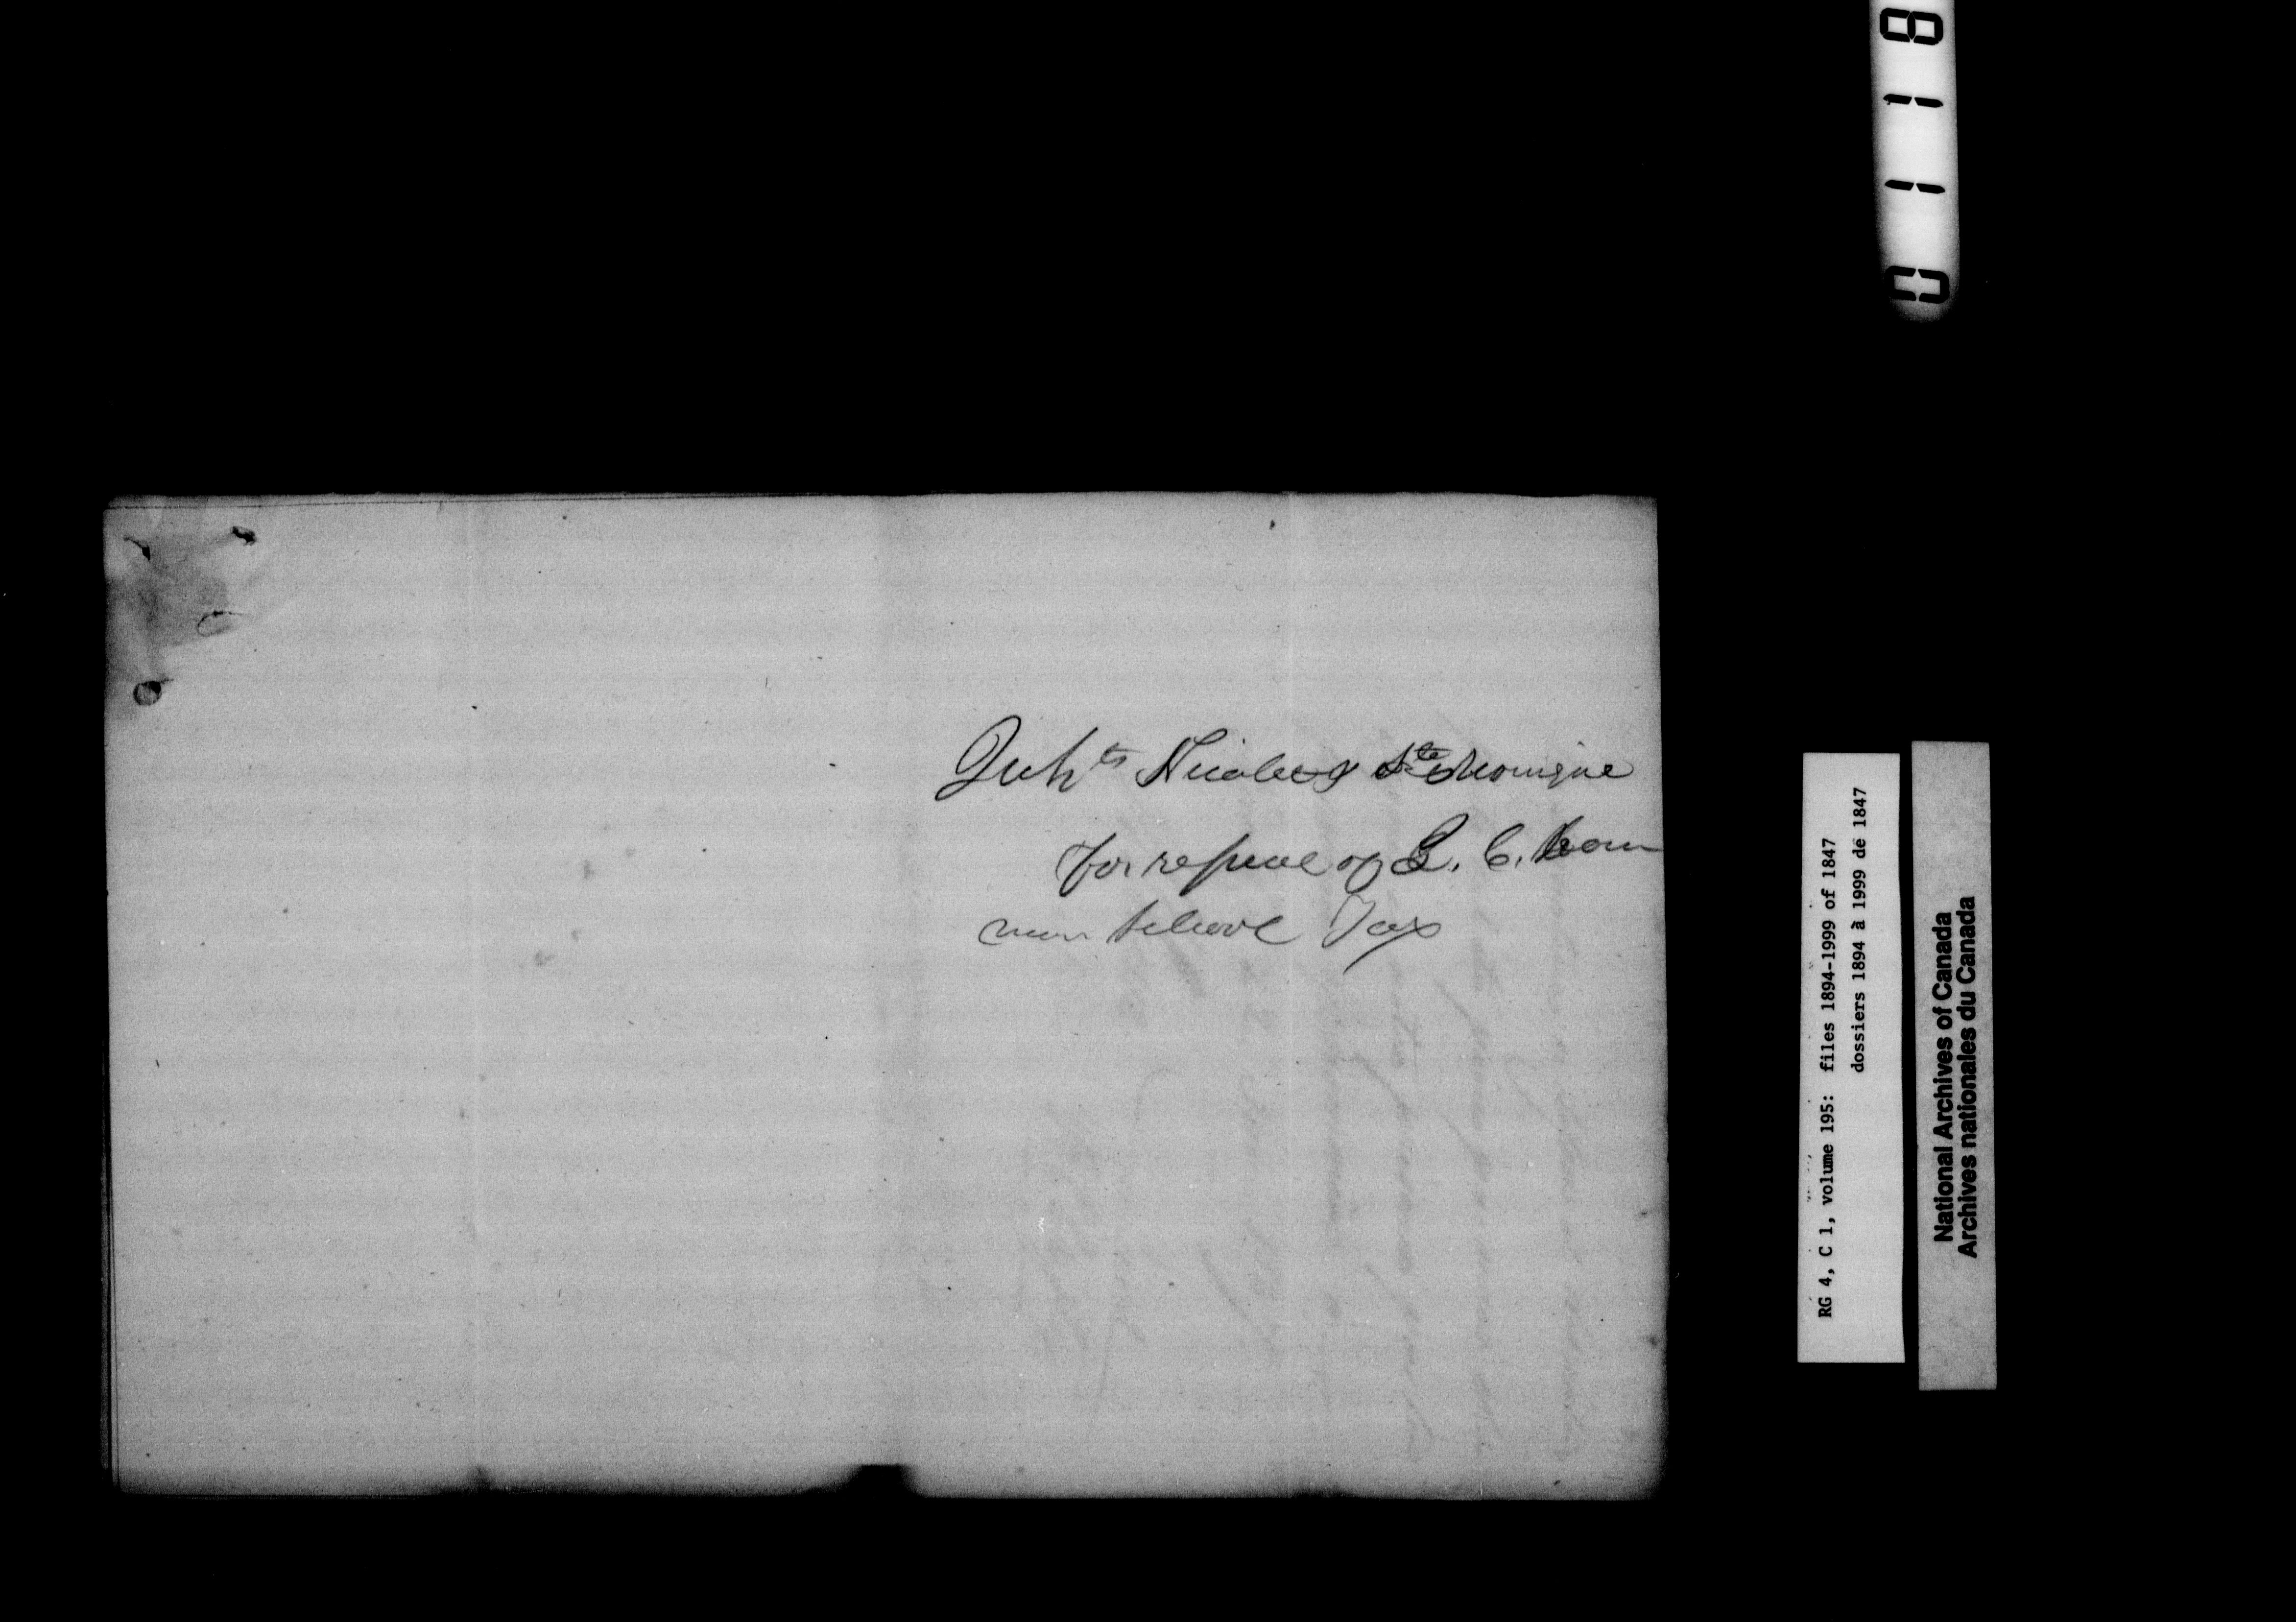 Inhts Nicolet & Ste Monique
for repeal of L. C. Com
mon School Tax
RG 4, C 1, volume 195: files 1894-1999 of 1847
dossiers 1894 à 1999 de 1847
National Archives of Canada
Archives nationales du Canada
0118